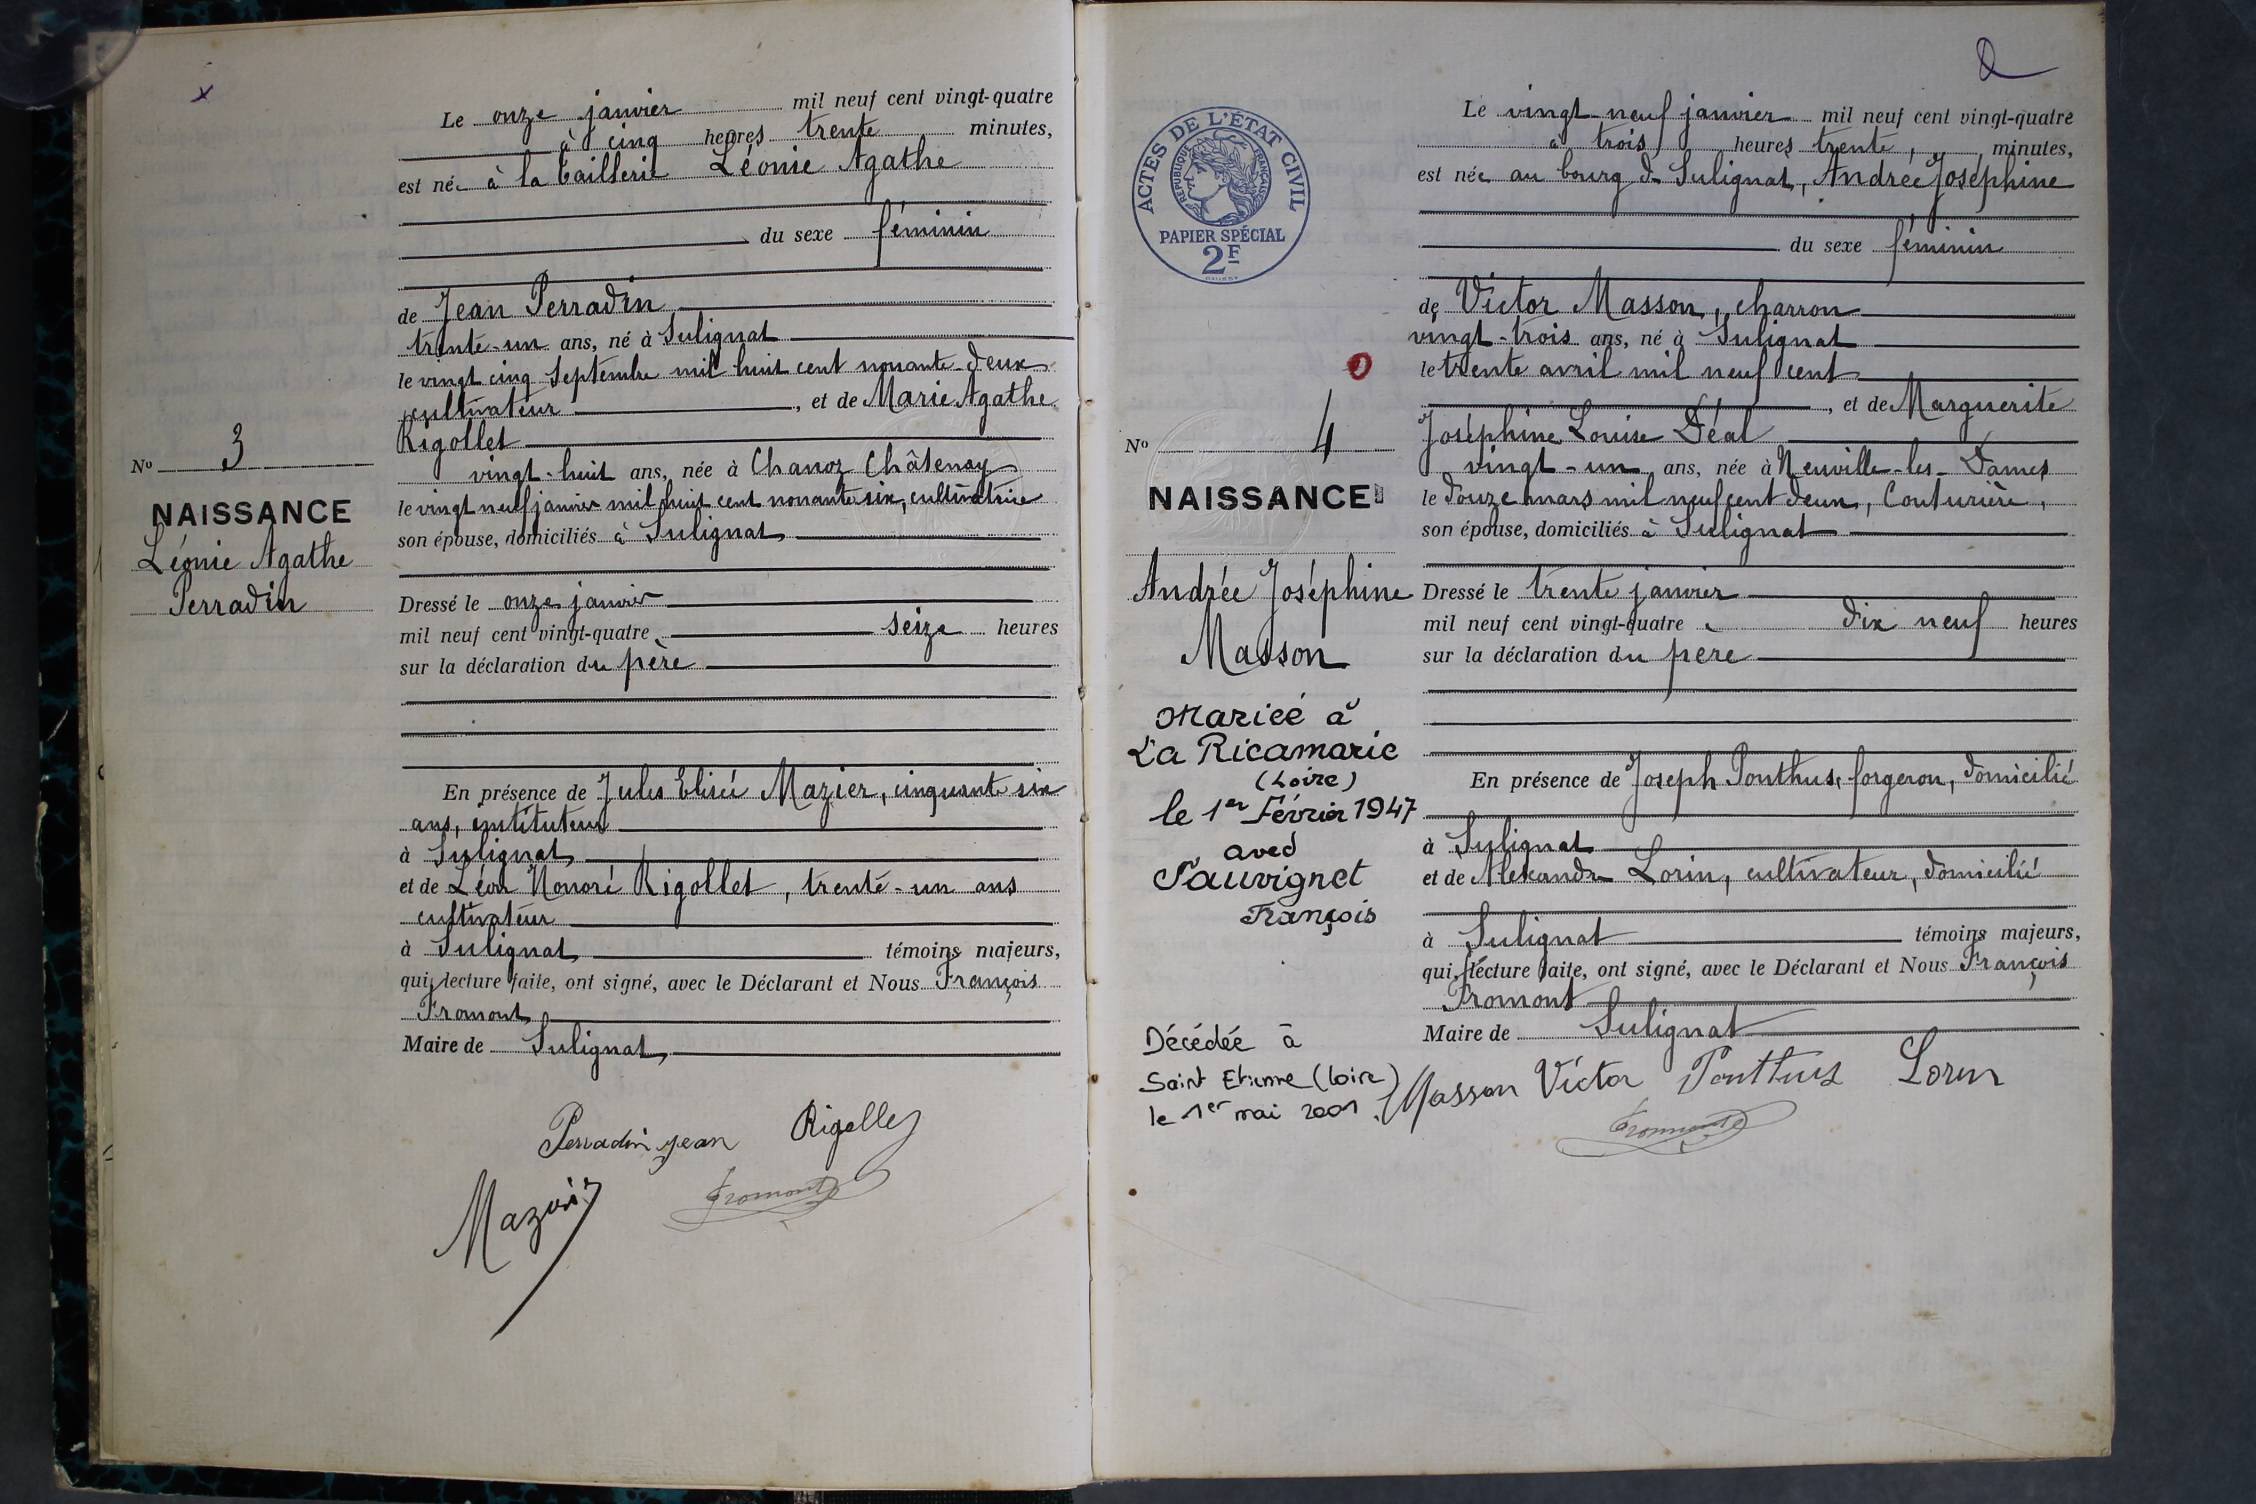 Le onze janvier mil neuf cent vingt-quatre
à cinq heures trente minutes,
est née à la Taillerie Léonie Agathe
du sexe féminin
de Jean Perradin
trente-un ans, né à Sulignat
le vingt cinq Septembre mil huit cent nonante-deux
cultivateur, et de Marie Agathe
Rigollet
No 3
vingt-huit ans, née à Chanoz Châtenay
le vingt neuf janvier mil huit cent nonante six, cultivatrice
NAISSANCE
son épouse, domiciliés à Sulignat
Léonie Agathe
Perradin
Dressé le onze janvier
mil neuf cent vingt-quatre, seize heures
sur la déclaration du père
En présence de Jules Elisée Mazier, cinquante six
ans, instituteur
à Sulignat
et de Léon Honoré Rigollet, trente-un ans
cultivateur
à Sulignat témoins majeurs,
qui, lecture faite, ont signé, avec le Déclarant et Nous François
Fromont
Maire de Sulignat
Perradin jean Rigollet
Mazier Fromont
2
ACTES DE L'ÉTAT CIVIL
RÉPUBLIQUE FRANÇAISE
PAPIER SPÉCIAL
2F
Le vingt neuf janvier mil neuf cent vingt-quatre
à trois heures trente, minutes,
est née au bourg de Sulignat, Andrée Joséphine
du sexe féminin
de Victor Masson, charron
vingt-trois ans, né à Sulignat
le trente avril mil neuf cent
, et de Marguerite
No 4
Joséphine Louise Déal
vingt-un ans, née à Neuville-les-Dames
NAISSANCE
le douze mars mil neuf cent deux, Couturière,
son épouse, domiciliés à Sulignat
Andrée Joséphine
Masson
Dressé le trente janvier
mil neuf cent vingt-quatre à dix neuf heures
sur la déclaration du père
Mariée à
La Ricamarie
(Loire)
le 1er Février 1947
avec
Sauvignet
François
En présence de Joseph Ponthus, forgeron, domicilié
à Sulignat
et de Alexandre Lorin, cultivateur, domicilié
à Sulignat témoins majeurs,
qui, lecture faite, ont signé, avec le Déclarant et Nous François
Fromont
Maire de Sulignat
Décédée à
Saint Etienne (Loire)
le 1er mai 2001.
Masson Victor Ponthus Lorin
Fromont